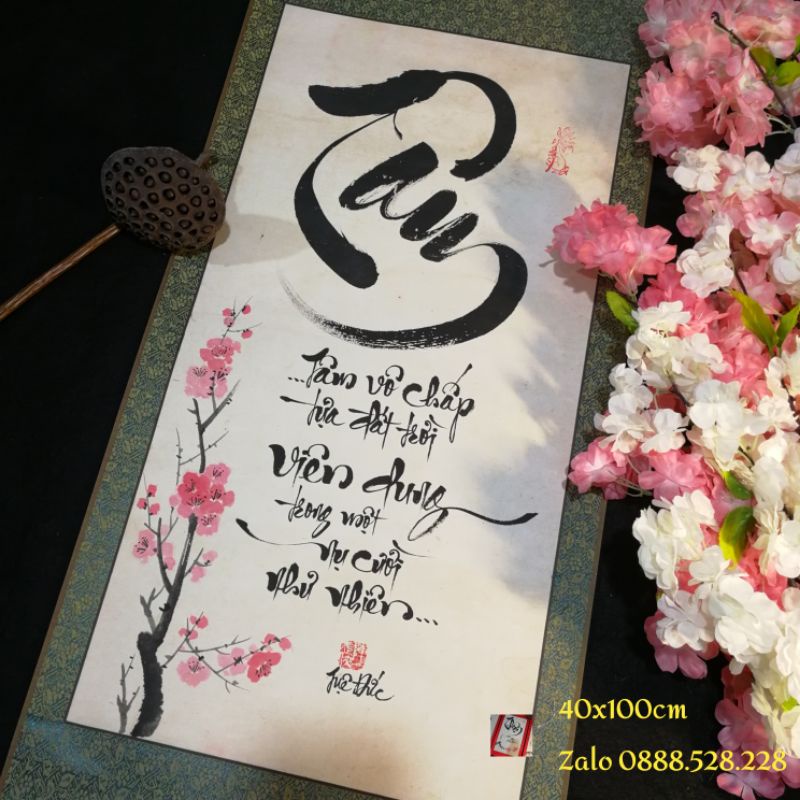 Tâm
...Tâm vô chấp
tựa đất trời
Viên dung
trong một
nụ cười
như nhiên...
Tuệ Đức
40x100cm
Zalo 0888.528.228